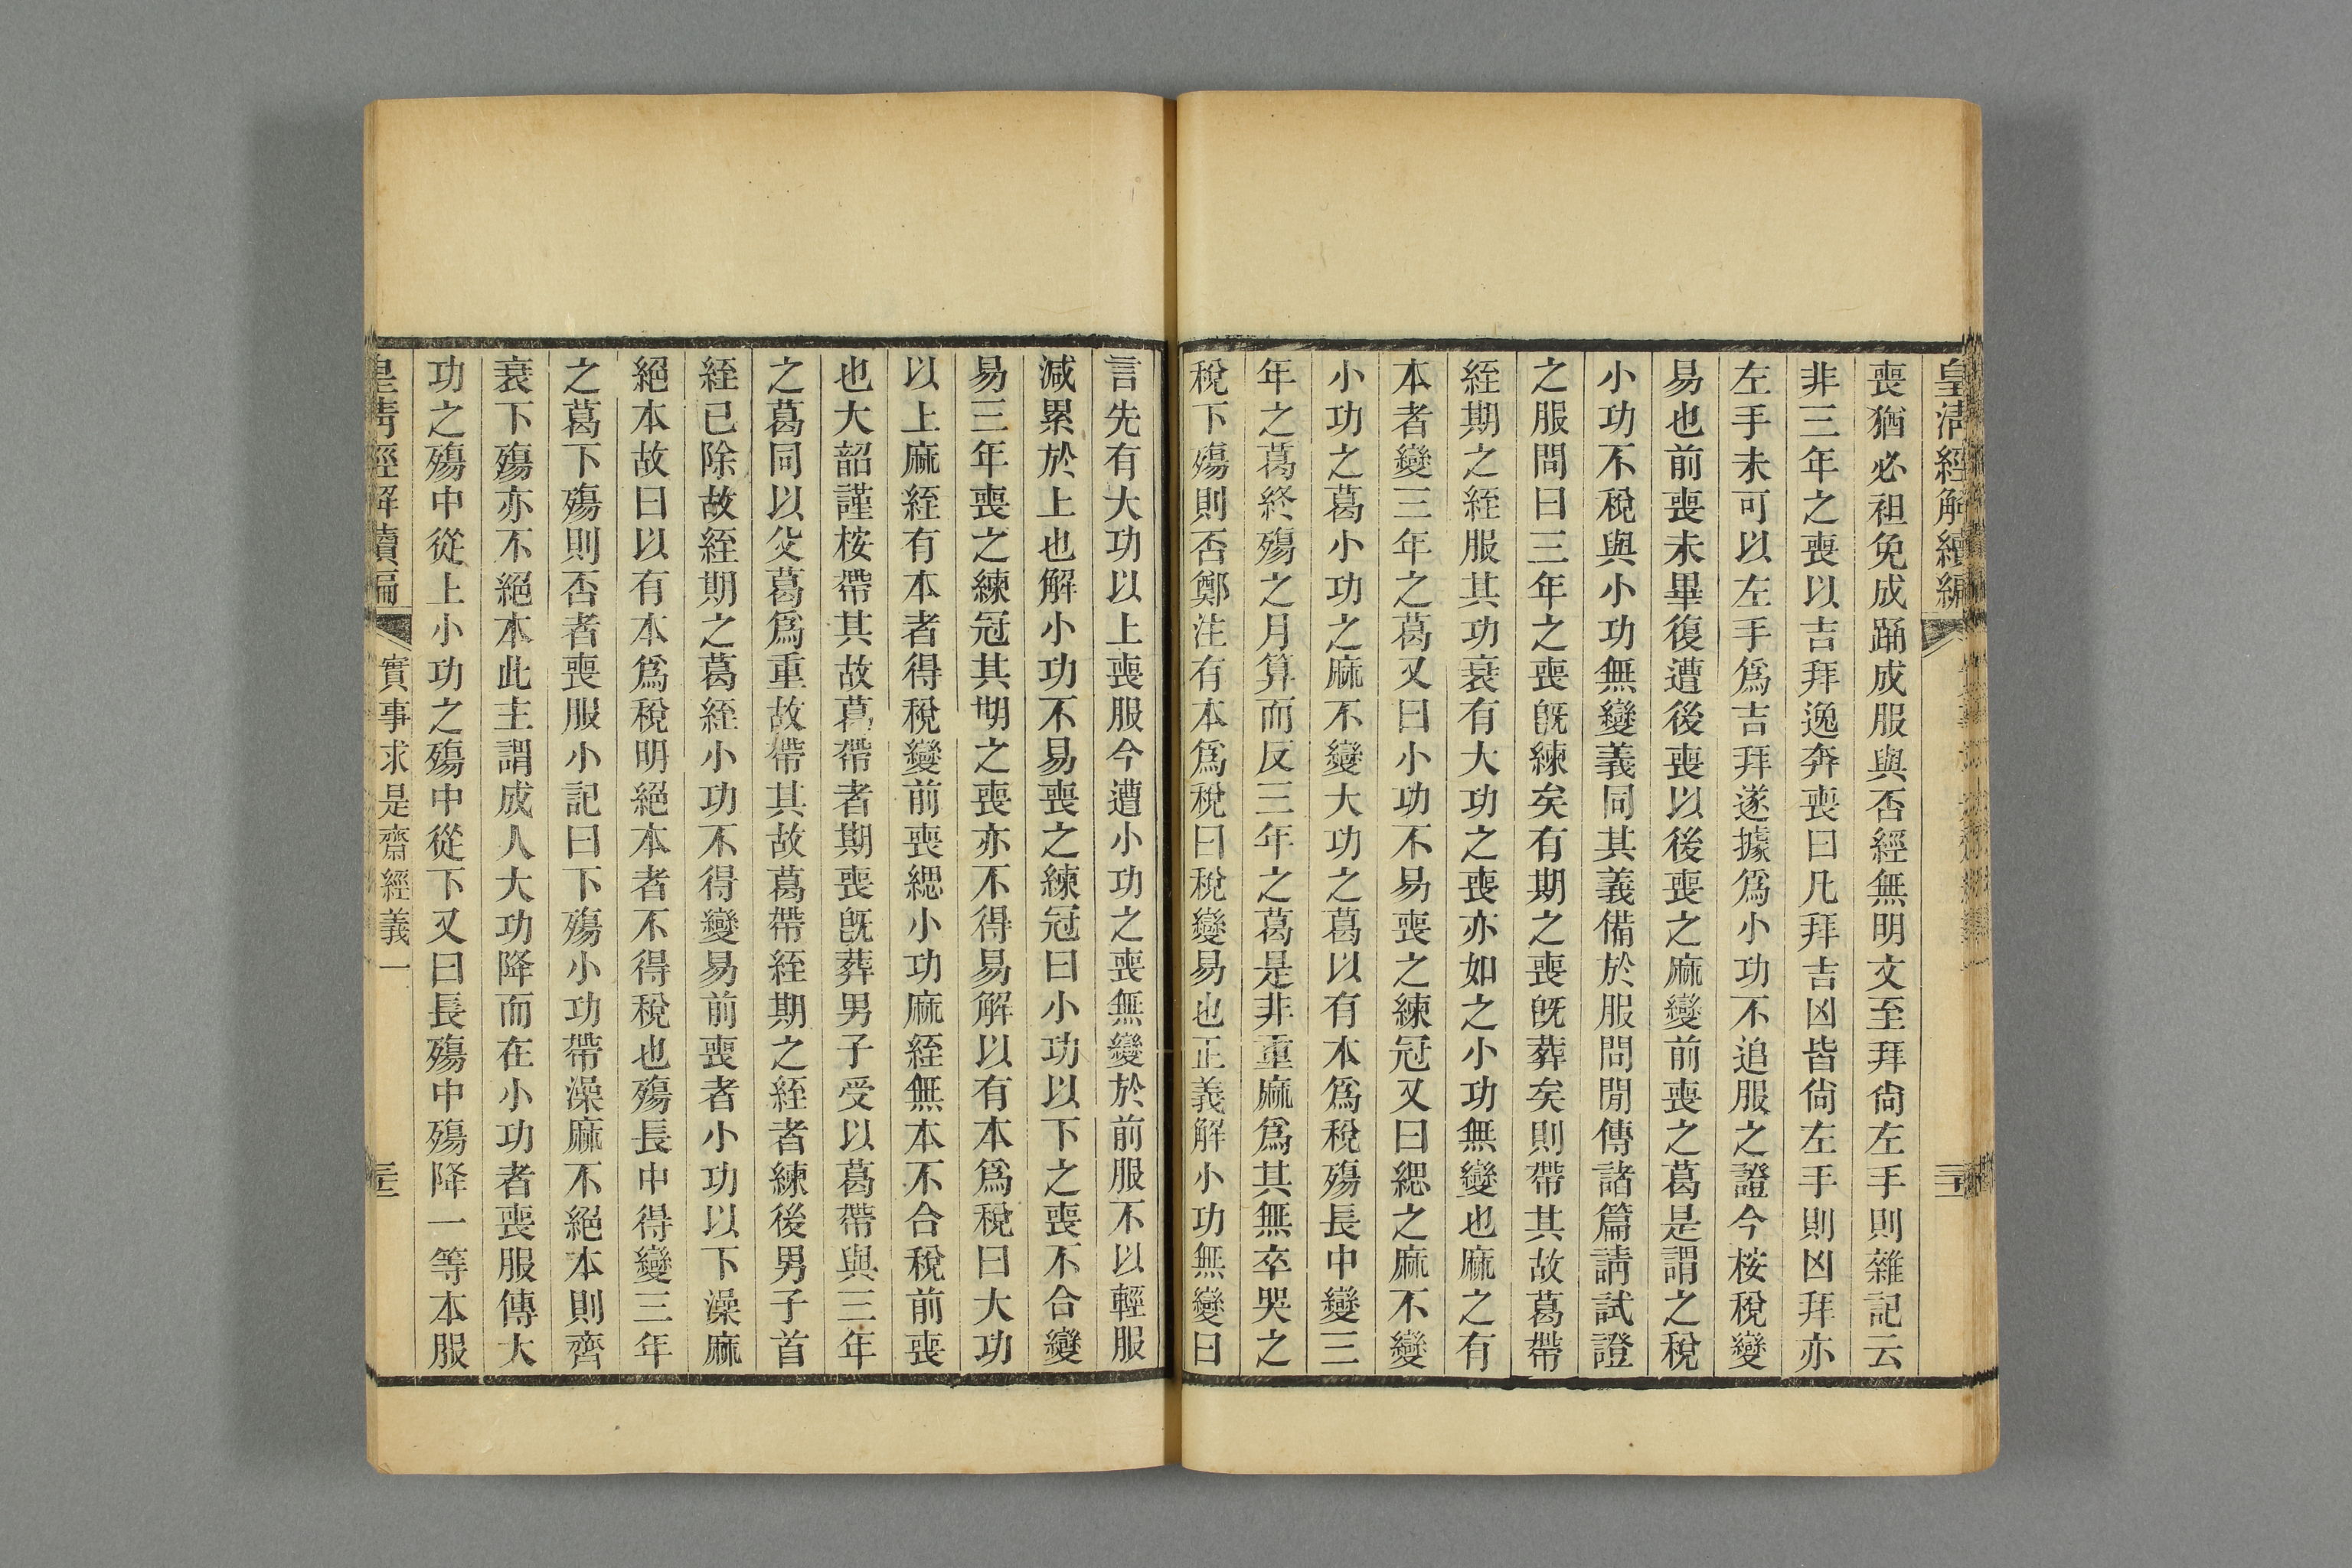 皇清經解續編
喪猶必袒免成踊成服與否經無明文至拜尙左手則雜記云
非三年之喪以吉拜逸奔喪曰凡拜吉凶皆尙左手則凶拜亦
左手未可以左手爲吉拜遂據爲小功不追服之證今桉稅變
易也前喪未畢復遭後喪以後喪之麻變前喪之葛是謂之稅
小功不稅與小功無變義同其義備於服問閒傳諸篇請試證
之服問曰三年之喪旣練矣有期之喪旣葬矣則帶其故葛帶
絰期之絰服其功衰有大功之喪亦如之小功無變也麻之有
本者變三年之葛又曰小功不易喪之練冠又曰緦之麻不變
小功之葛小功之麻不變大功之葛以有本爲稅殤長中變三
年之葛終殤之月算而反三年之葛是非重麻爲其無卒哭之
稅下殤則否鄭注有本爲稅曰稅變易也正義解小功無變曰
言先有大功以上喪服今遭小功之喪無變於前服不以輕服
減累於上也解小功不易喪之練冠曰小功以下之喪不合變
易三年喪之練冠其期之喪亦不得易解以有本爲稅曰大功
以上麻絰有本者得稅變前喪緦小功麻絰無本不合稅前喪
也大韶謹桉帶其故葛帶者期喪旣葬男子受以葛帶與三年
之葛同以父葛爲重故帶其故葛帶絰期之絰者練後男子首
絰已除故絰期之葛絰小功不得變易前喪者小功以下澡麻
絕本故曰以有本爲稅明絕本者不得稅也殤長中得變三年
之葛下殤則否者喪服小記曰下殤小功帶澡麻不絕本則齊
衰下殤亦不絕本此主謂成人大功降而在小功者喪服傳大
功之殤中從上小功之殤中從下又曰長殤中殤降一等本服
皇清經解續編 實事求是齋經義一